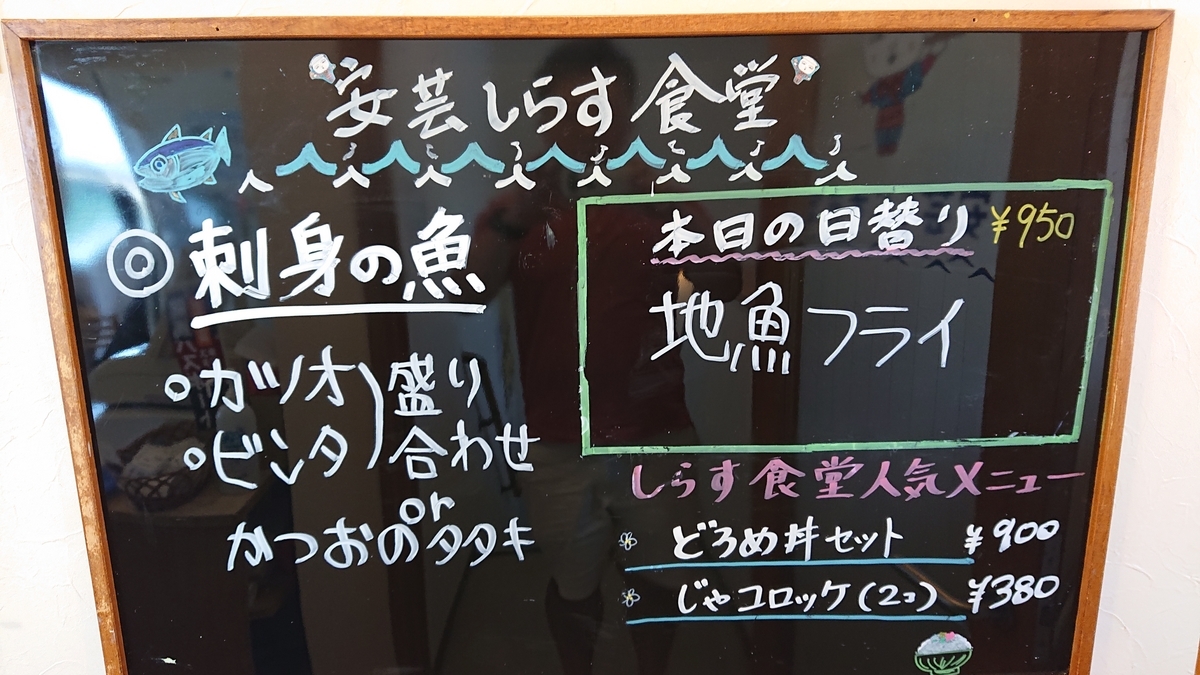 安芸しらす食堂
◎刺身の魚
○カツオ
○ビンタ
盛り
合わせ
or
かつおのタタキ
本日の日替り ¥950
地魚フライ
しらす食堂人気メニュー
どろめ丼セット ¥900
じゃコロッケ(2コ) ¥380